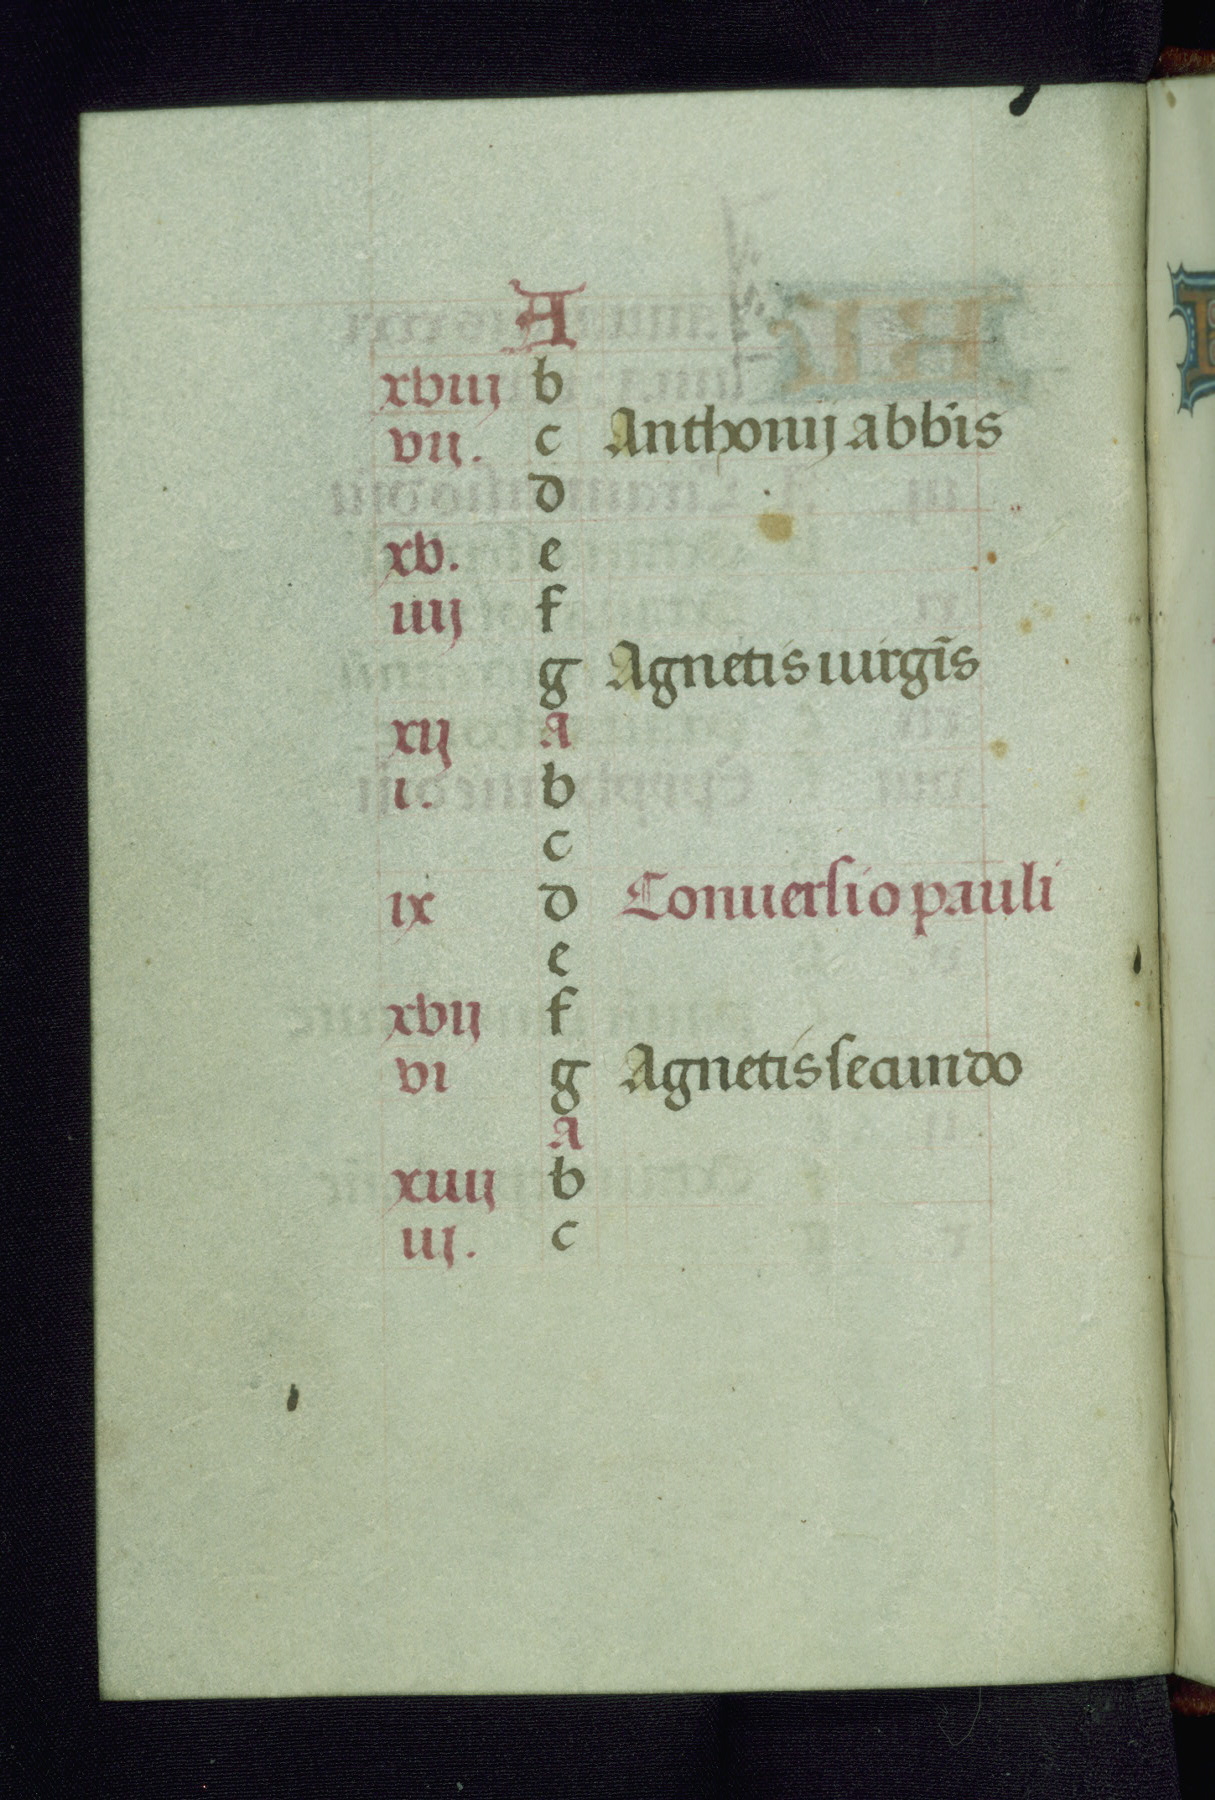 A
xviij b
vij. c Anthonij abb̄is
d
xv. e
iiij f
g Agnetis uirgīs
xij a
i. b
c
ix d Conuerſio pauli
e
xvij f
vi g Agnetis ſecundo
a
xiiij b
iij. c